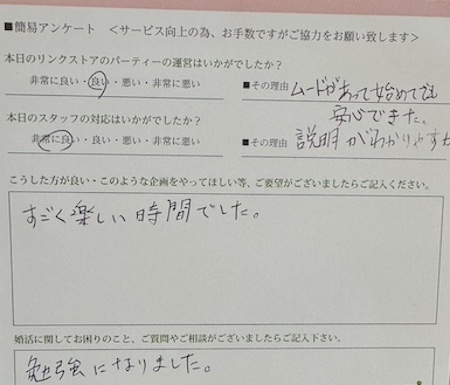 ■簡易アンケート ＜サービス向上の為、お手数ですがご協力をお願い致します＞
本日のリンクストアのパーティーの運営はいかがでしたか？
非常に良い・良い・悪い・非常に悪い
■その理由 ムードがあって始めてでも
安心できた。
本日のスタッフの対応はいかがでしたか？
非常に良い・良い・悪い・非常に悪い
■その理由 説明がわかりやすか
こうした方が良い・このような企画をやってほしい等、ご要望がございましたらご記入ください。
すごく楽しい時間でした。
婚活に関してお困りのこと、ご質問やご相談がございましたらご記入下さい。
勉強になりました。